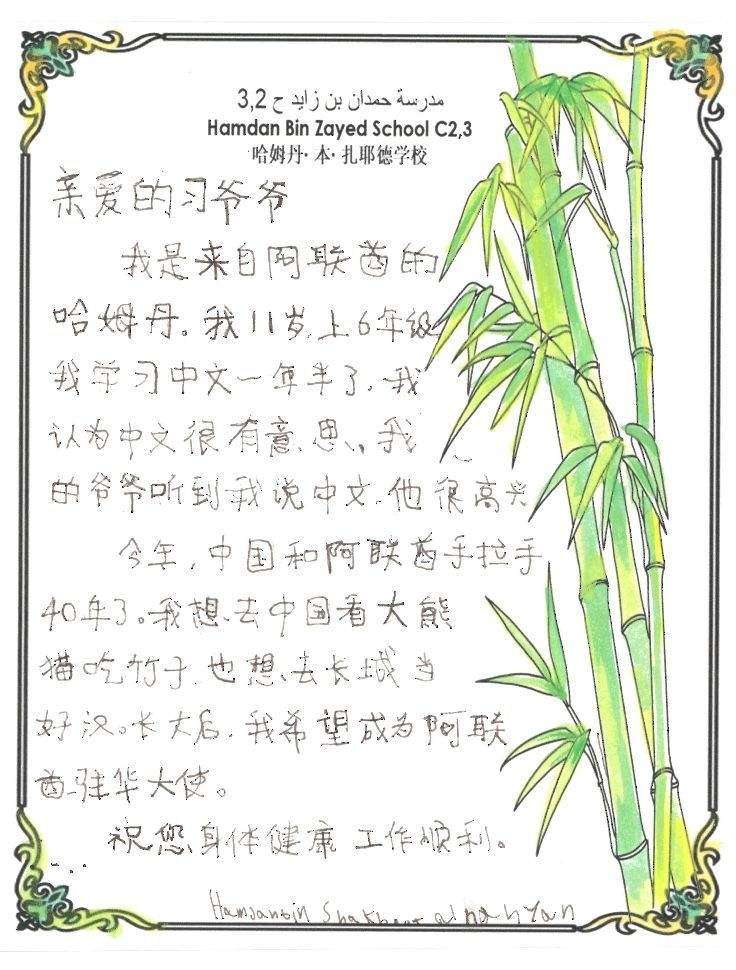 مدرسة حمدان بن زايد ح 3,2
Hamdan Bin Zayed School C2,3
哈姆丹·本·扎耶德学校
亲爱的习爷爷
我是来自阿联酋的
哈姆丹。我11岁,上6年级
我学习中文一年半了,我
认为中文很有意思、我
的爷爷听到我说中文,他很高兴
今年,中国和阿联酋手拉手
40年了。我想去中国看大熊
猫吃竹子,也想去长城当
好汉。长大后,我希望成为阿联
酋驻华大使。
祝您身体健康 工作顺利。
Hamdanbin Shakhboot al nahyan